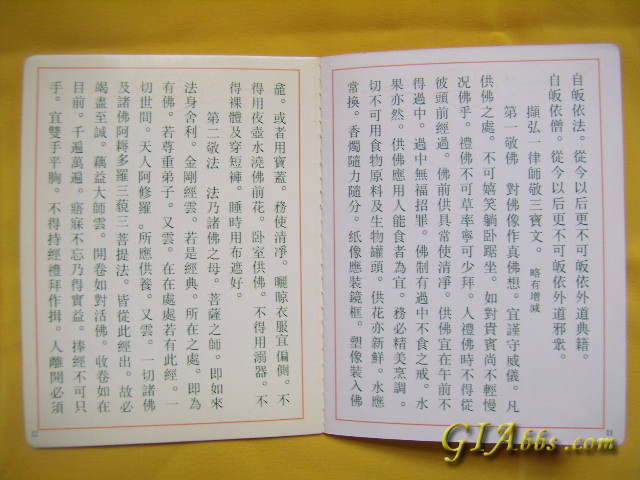 自皈依法。從今以后更不可皈依外道典籍。
自皈依僧。從今以后更不可皈依外道邪衆。
擷弘一律師敬三寶文。 略有增减
第一敬佛 對佛像作真佛想。宜謹守威儀。凡
供佛之處。不可嬉笑躺卧踞坐。如對貴賓尚不輕慢
况佛乎。禮佛不可草率寧可少拜。人禮佛時不得從
彼頭前經過。佛前供具常使清凈。供佛宜在午前不
得過中。過中無福招罪。佛制有過中不食之戒。水
果亦然。供佛應用人能食者為宜。務必精美烹調。
切不可用食物原料及生物罐頭。供花亦新鮮。水應
常换。香燭隨力隨分。紙像應裝鏡框。塑像装入佛
龕。或者用寶蓋。務使清凈。曬晾衣服宜偏側。不
得用夜壺水澆佛前花。卧室供佛。不得用溺器。不
得裸體及穿短褲。睡時用布遮好。
第二敬法 法乃諸佛之母。菩薩之師。即如來
法身舍利。金剛經雲。若是經典。所在之處。即為
有佛。若尊重弟子。又雲。在在處處若有此經。一
切世間。天人阿修羅。所應供養。又云。一切諸佛
及諸佛阿耨多羅三藐三菩提法。皆從此經出。故必
竭盡至誠。藕益大師雲。開卷如對活佛。收卷如在
目前。千遍萬遍。寤寐不忘乃得實益。捧經不可只
手。宜雙手平胸。不得持經禮拜作揖。人離開必須
GIAbbs.com